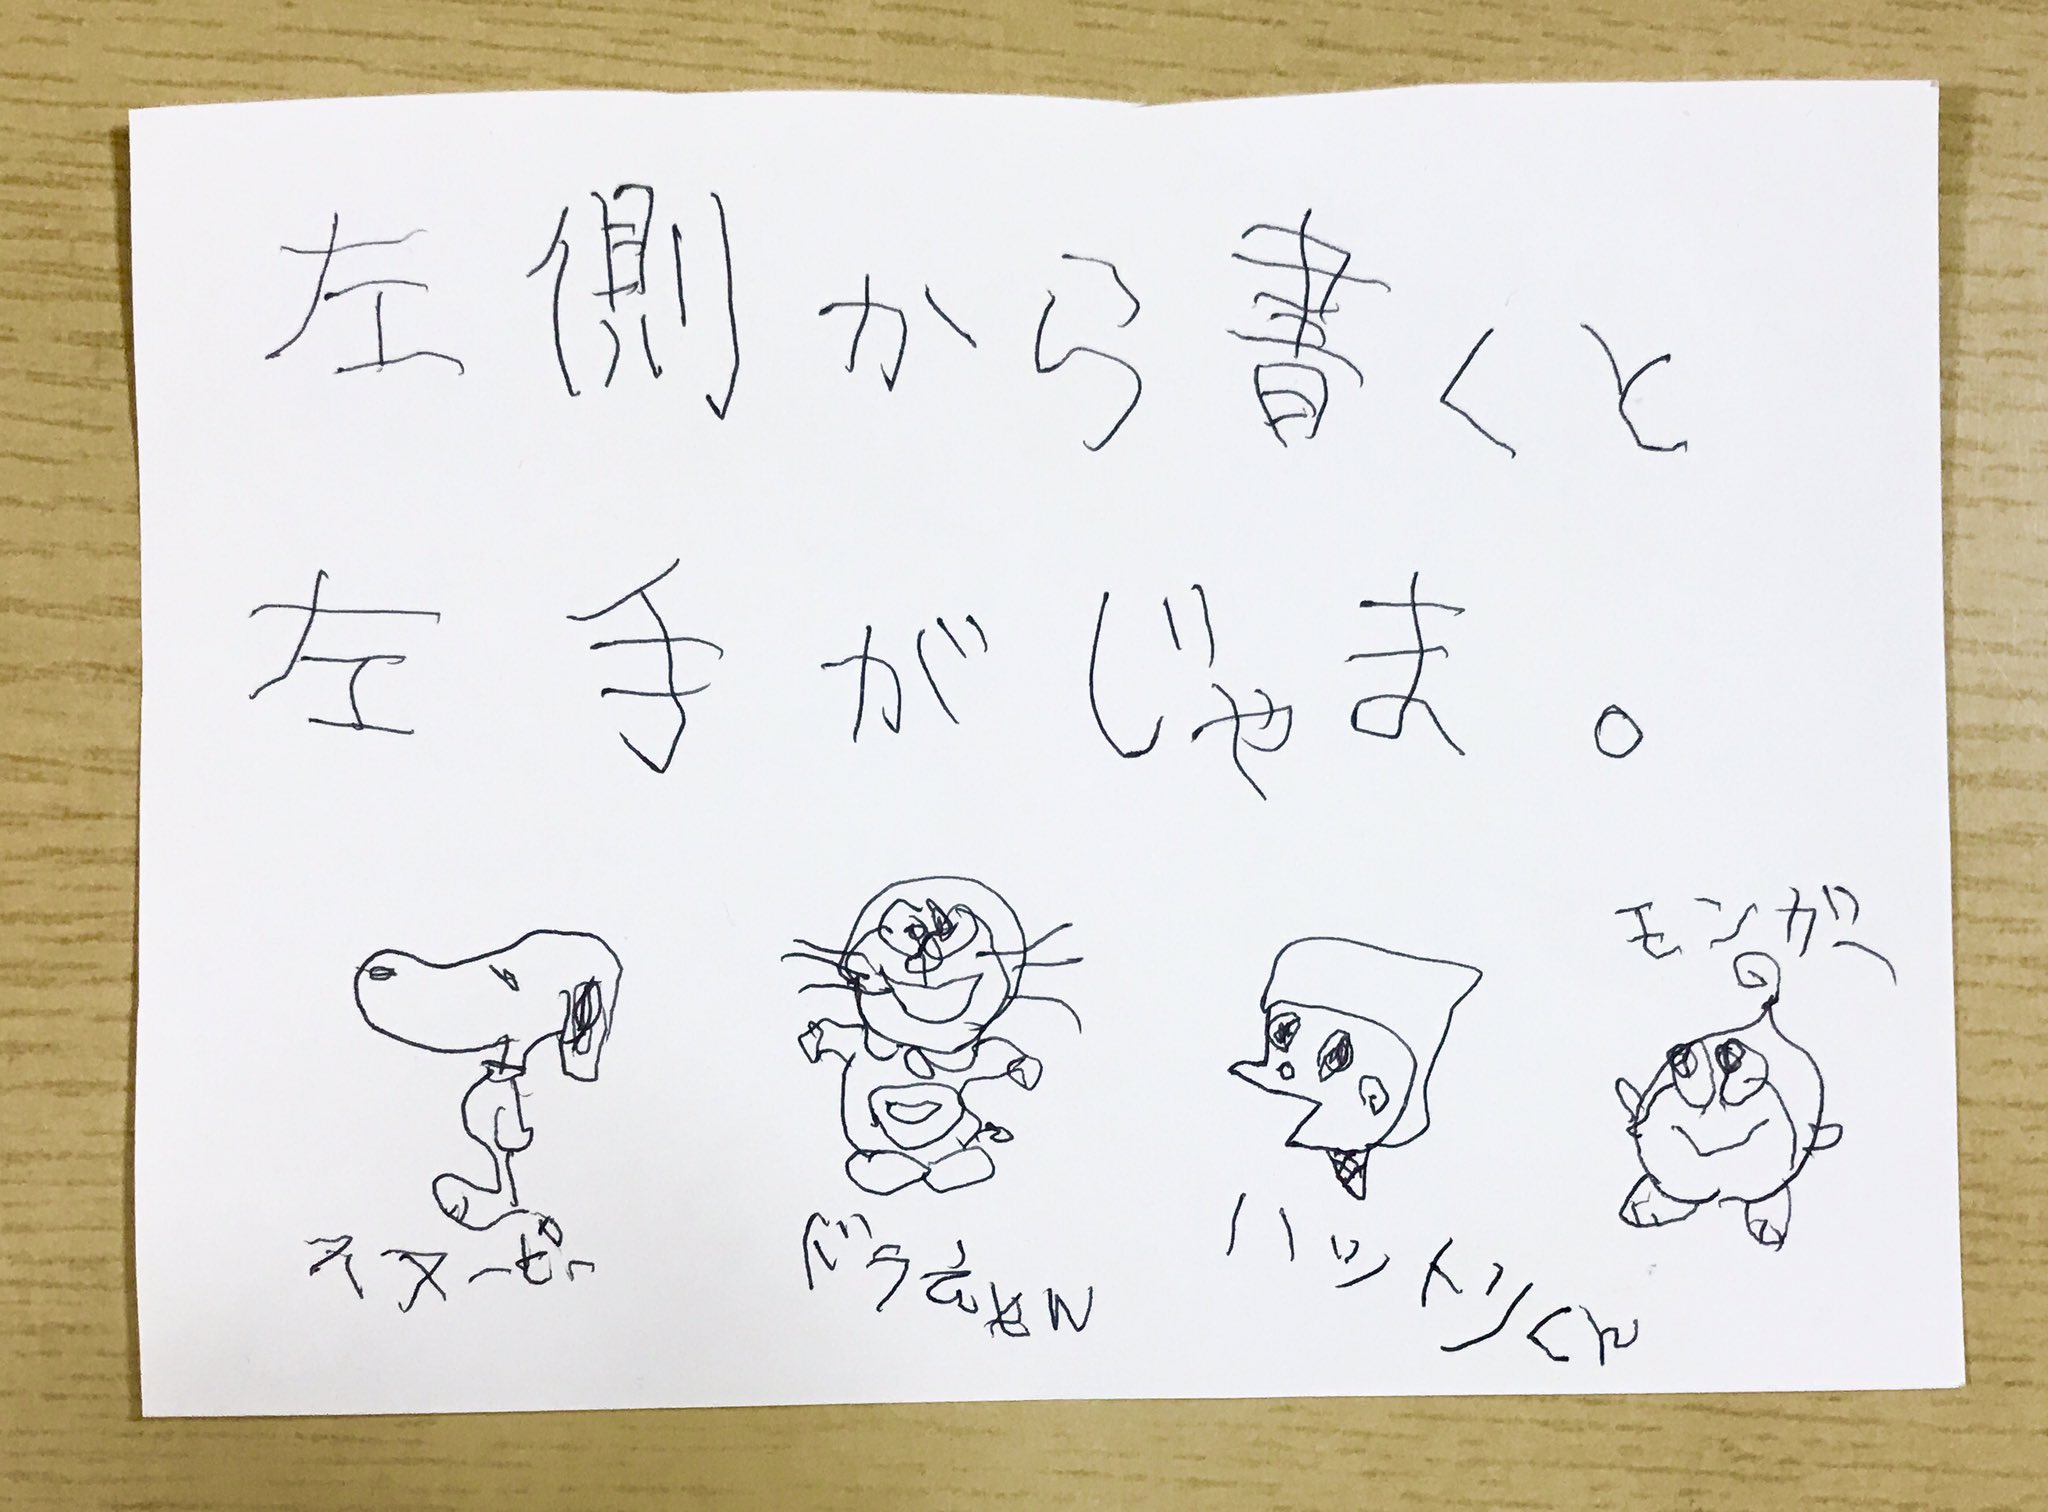 左側から書くと
左手がじゃま。
モンガー
スヌーピー
ドラえもん
ハットリくん